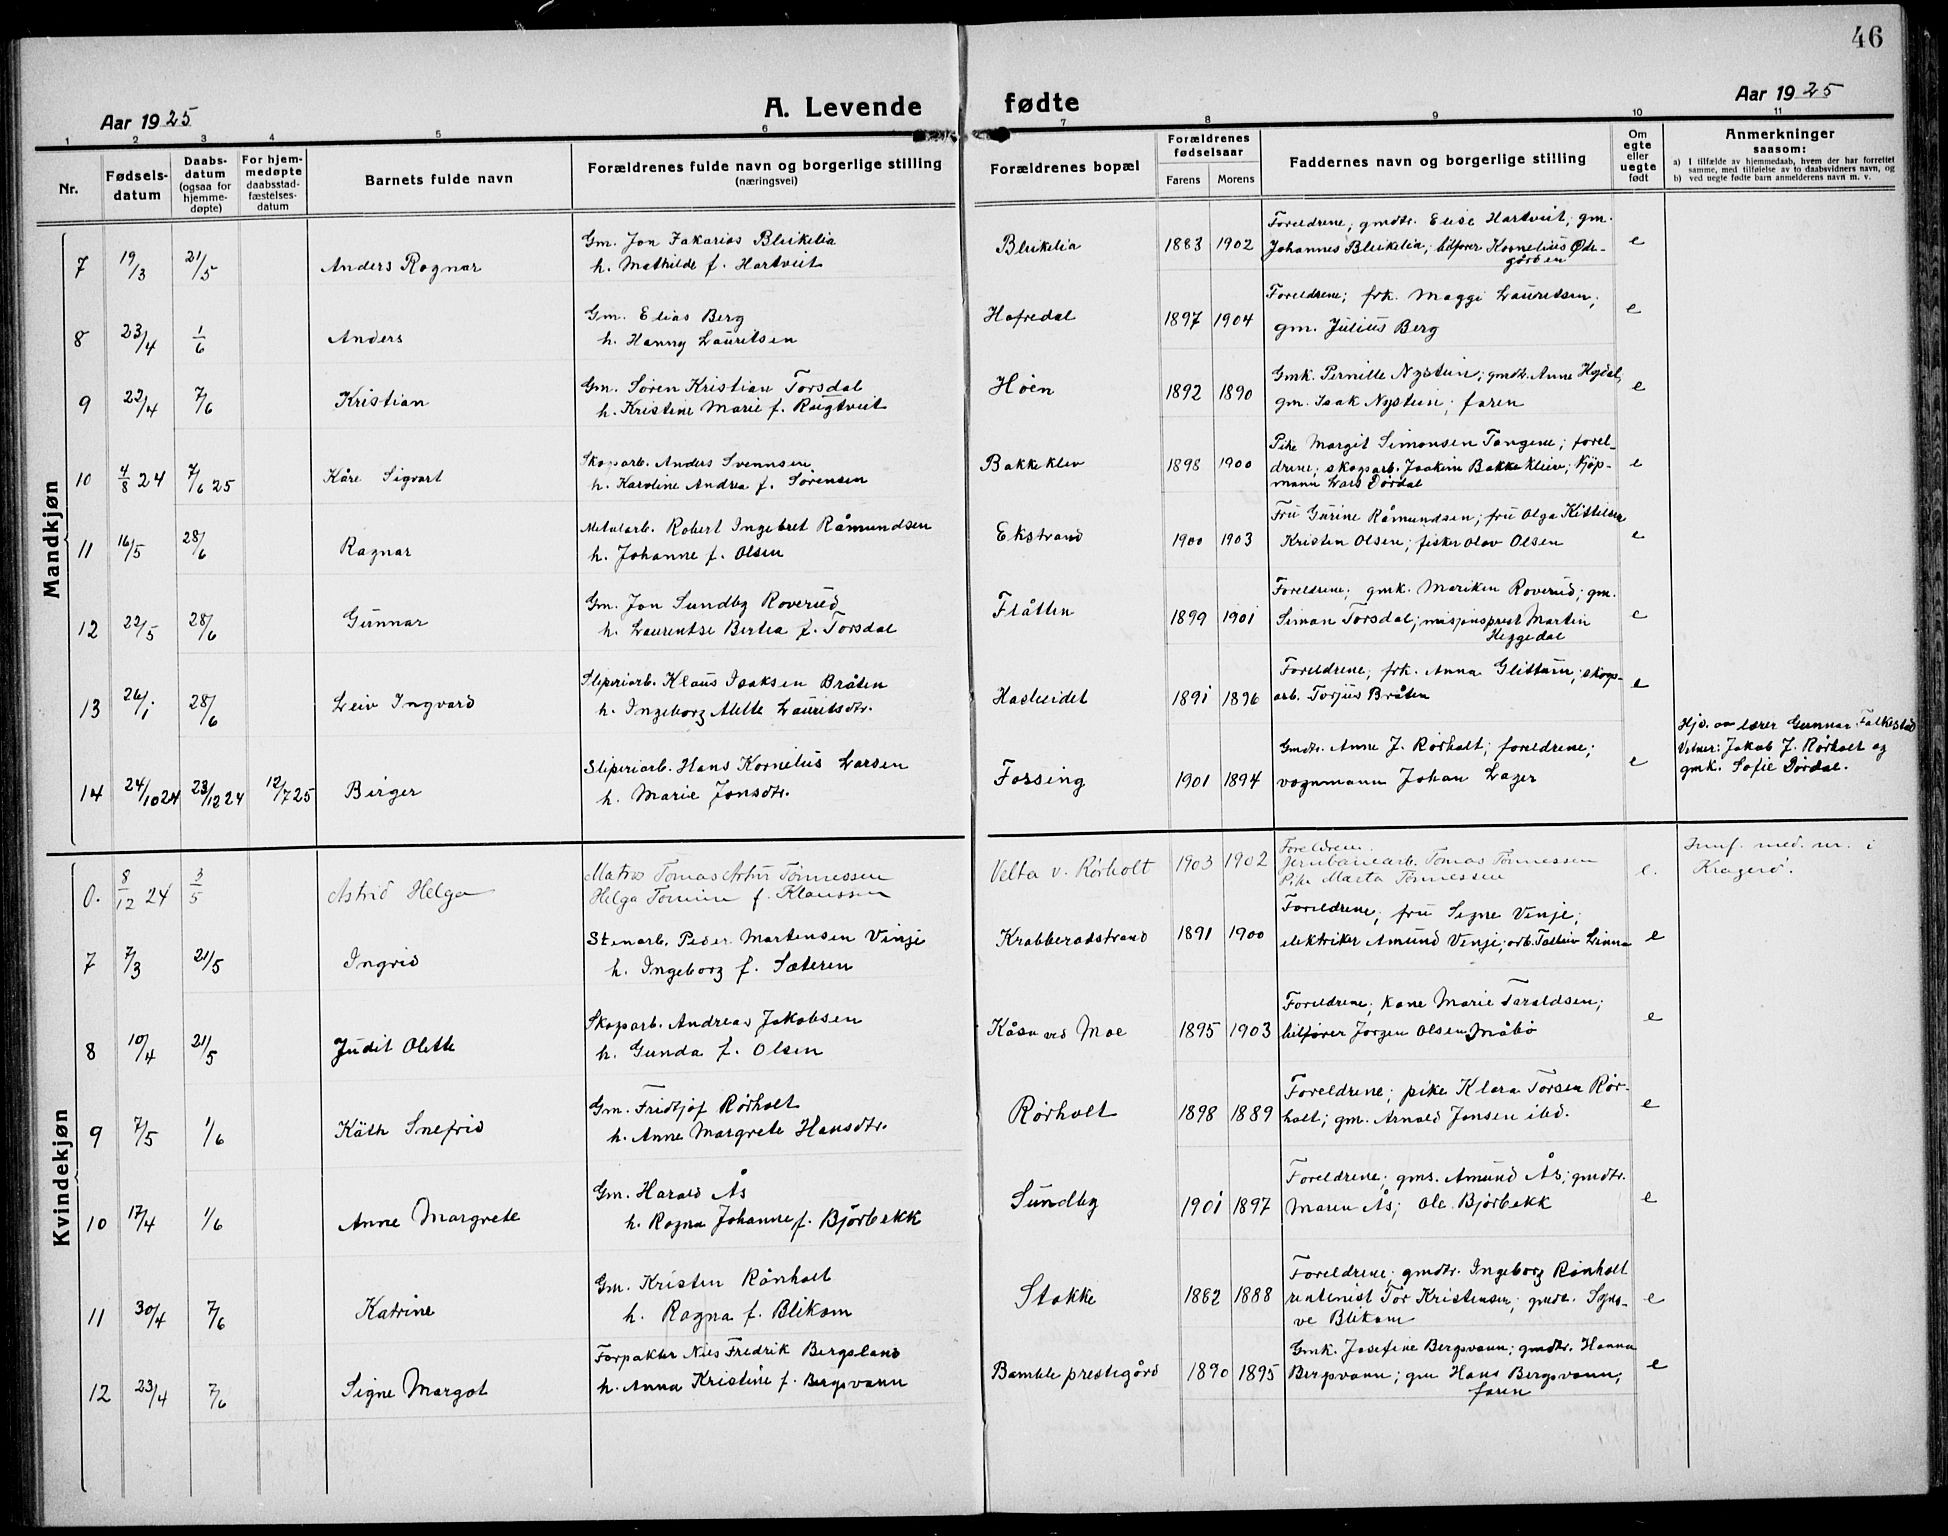 46
Aar 1925
A. Levende fødte
Aar 1925
1 2 3 4 5 6 7 8 9 10 11
Nr.
Fødsels-
datum
Daabs-
datum
(ogsaa for
hjemme-
døpte)
For hjem-
medøpte
daabsstad-
fæstelses-
datum
Barnets fulde navn
Forældrenes fulde navn og borgerlige stilling
(næringsvei)
Forældrenes bopæl
Forældrenes
fødselsaar
Farens Morens
Faddernes navn og borgerlige stilling
Om
egte
eller
uegte
født
Anmerkninger
saasom:
a) I tilfælde av hjemmedaab, hvem der har forrettet
samme, med tilføielse av to daabsvidners navn, og
b) ved uegte fødte barn anmelderens navn m. v.
Mandkjøn
7 19/3 21/5 Anders Ragnar
Gm. Jon Zakarias Bleikelia
h. Mathilde f. Hartveit
Bleikelia 1883 1902
Foreldrene; gmdtr. Elise Hartveit; gm.
Johannes Bleikelia; bilfører Kornelius Øde-
gården
e
8 23/4 1/6 Anders
Gm. Elias Berg
h. Hanny Lauritsen
Hafredal 1897 1904
Foreldrene; frk. Maggi Lauritsen;
gm. Julius Berg
e
9 22/4 7/6 Kristian
Gm. Søren Kristian Torsdal
h. Kristine Marie f. Rugtveit
Høen 1892 1890
Gmk. Pernille Nystein; gmdtr. Anne Hydal,
gm. Isak Nystein; faren
e
10 4/8 24 7/6 25 Kåre Sigvart
Skogarb. Anders Svennsen
h. Karoline Andrea f. Sørensen
Bakkekleiv 1898 1900
Pike Margit Simonsen Tangene; forel-
drene; skogsarb. Joakim Bakkekleiv; kjøp-
mann Lars Dørdal
e
11 16/5 28/6 Ragnar
Metalarb. Robert Ingebret Råmundsen
h. Johanne f. Olsen
Ekstrand 1900 1903
Fru Gurine Råmundsen; fru Olga Kittilsen
Kristen Olsen; fisker Olav Olsen
e
12 22/5 28/6 Gunnar
Gm. Jon Sundby Roverud
h. Laurentse Bertea f. Torsdal
Flåtten 1899 1901
Foreldrene; gmk. Mariken Roverud; gm.
Simon Torsdal; misjonsprest Martin
Heggedal
e
13 26/1 28/6 Leiv Ingvard
Sliperiarb. Klaus Isaksen Bråten
h. Ingeborg Alette Lauritsdtr.
Hasleidet 1891 1896
Foreldrene; frk. Anna Glittum; skogs-
arb. Torjus Bråten
e
14 24/10 24 23/12 24 12/7 25 Birger
Sliperiarb. Hans Kornelius Larsen
h. Marie Jonsdtr.
Forsing 1901 1894
Gmdtr. Anne J. Rørholt; foreldrene;
vognmann Johan Lager
e
Hjd. av lærer Gunnar Falkestad
Vitner: Jakob J. Rørholt og
gmk. Sofie Dørdal.
Kvindekjøn
0. 8/12 24 3/5 Astrid Helga
Matros Tomas Artur Tønnessen
Helga f. Klaussen
Velta v. Rørholt 1903 1902
Foreldrene.
Jernbanearb. Tomas Tønnessen
Pike Marta Tønnessen
e.
Innf. med nr. i
Kragerø.
7 7/3 21/5 Ingrid
Stenarb. Peder Martensen Vinje
h. Ingeborg f. Sæteren
Krabberødstrand 1891 1900
Foreldrene; fru Signe Vinje;
elektriker Amund Vinje; arb. Talleiv Linna
e
8 10/4 21/5 Judit Olette
Skogarb. Andreas Jakobsen
h. Gunda f. Olsen
Kåsa ved Moe 1895 1903
Foreldrene; kone Marie Taraldsen;
bilfører Jørgen Olsen Måbø
e
9 7/5 1/6 Käth Snefrid
Gm. Fridtjof Rørholt
h. Anne Margrete Hansdtr.
Rørholt 1898 1889
Foreldrene; pike Klara Torsen Rør-
holt; gm. Arnold Jensen ibd.
e
10 17/4 1/6 Anne Margrete
Gm. Harald Ås
h. Ragna Johanne f. Bjørbekk
Sundby 1901 1897
Foreldrene; gms. Amund Ås; gmdtr.
Maren Ås; Ole Bjørbekk
e
11 30/4 7/6 Katrine
Gm. Kristen Rønholt
h. Ragna f. Blikom
Stokke 1882 1888
Foreldrene; gmdtr. Ingeborg Rønholt
rentenist Tor Kristensen; gmdtr. Syno-
ve Blikom
e
12 23/4 7/6 Signe Margot
Forpakter Nils Fredrik Bergsland
h. Anna Kristine f. Bergsvann
Bamble prestegård 1890 1895
Gmk. Josefine Bergsvann; gmdtr. Hanna
Bergsvann; gm Hans Bergsvann;
faren
e